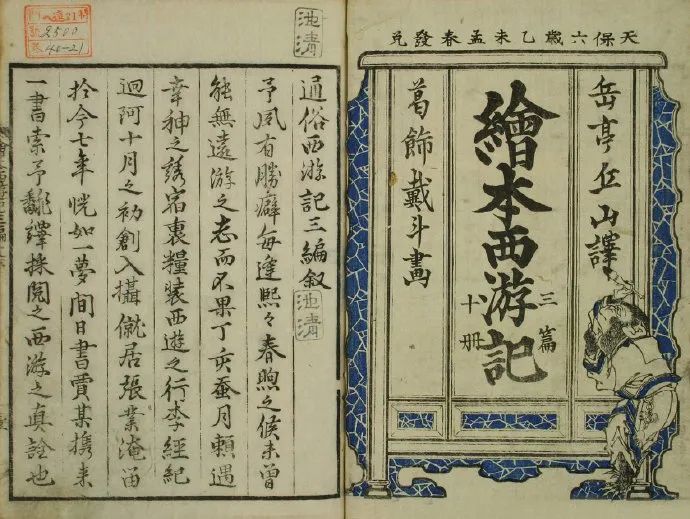 天保六歳乙未孟春發兌
岳亭丘山譯
繪本西游記
三篇
十冊
葛飾戴斗畫
池清
通俗西游記三編叙
池清
予夙有勝癖每逢熙々春煦之候未曾
能無遠游之志而不果丁亥蚕月頼遇
幸神之誘宿裹糧装西遊之行李經紀
迴阿十月之初創入攝僦居張業淹留
於今七年恍如一夢間日書賈某携来
一書索予翻繹採閲之西游之真詮也
2500
40-21